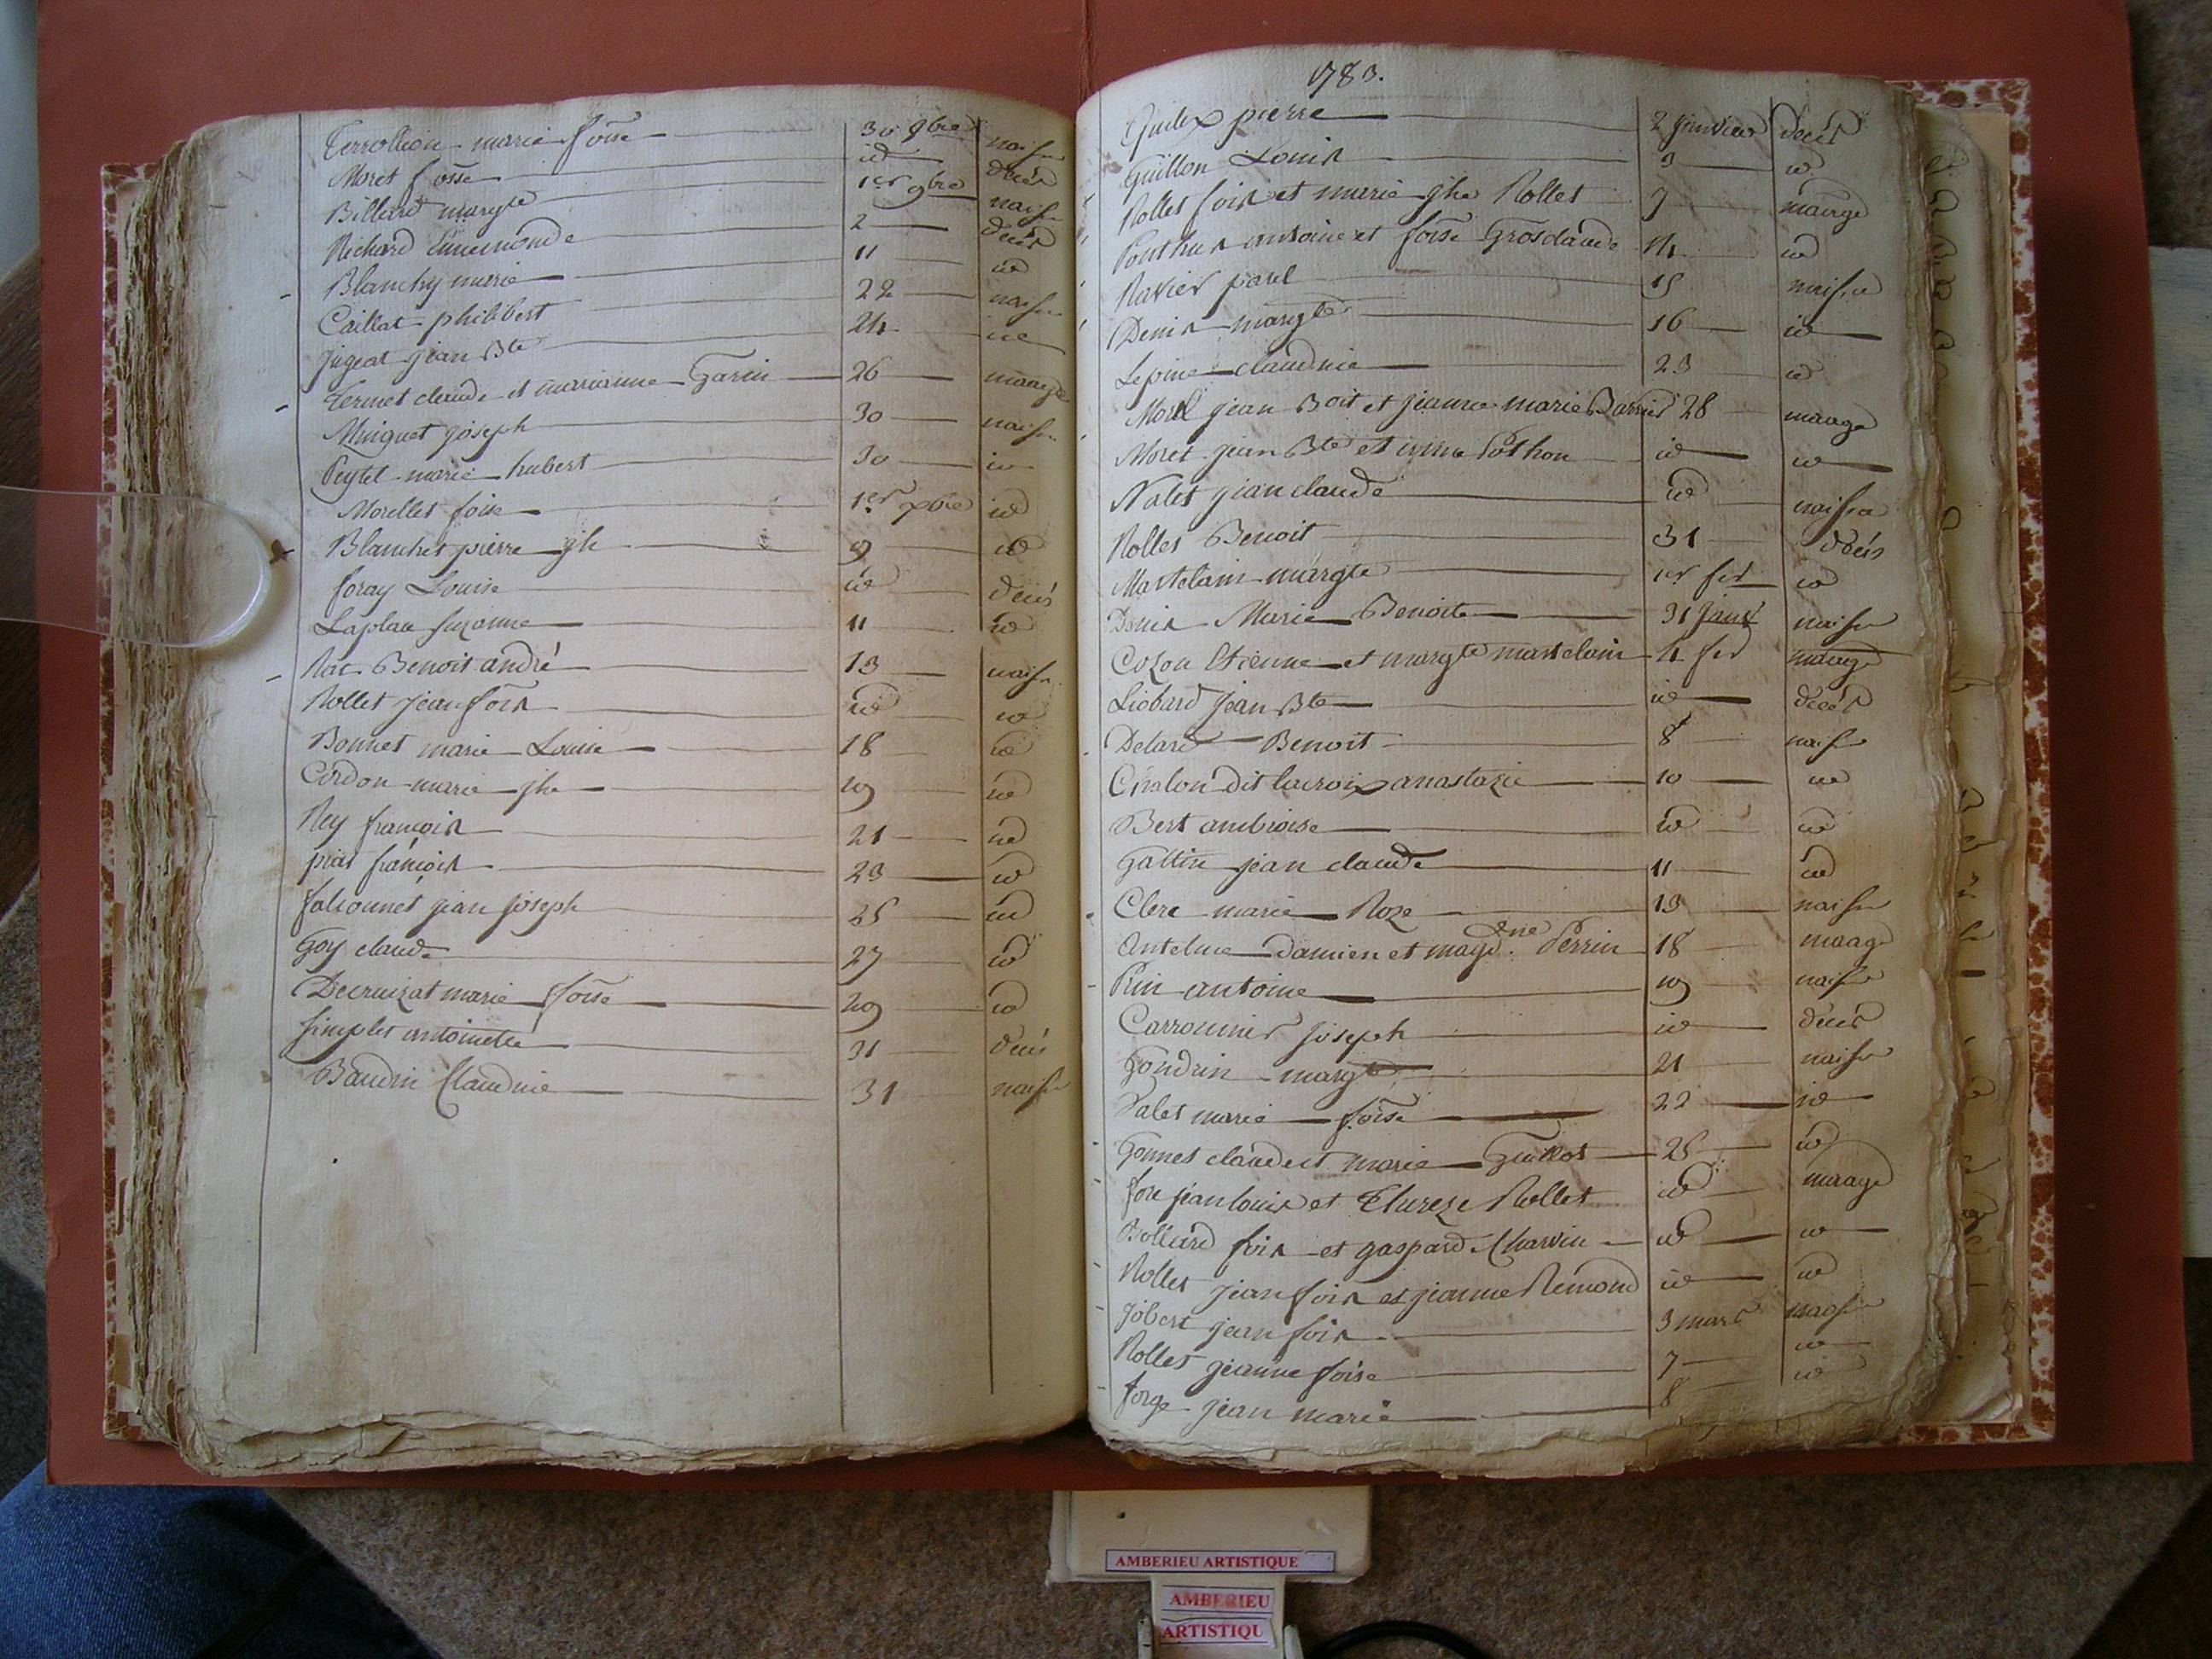 marie foise 30 9bre naisce
Moret foise id décès
Billard margte 1er 9bre naisce
Richard Ennemonde 2 décès
Blanchy marie 11 id
Caillat philibert 22 naisce
Jugeat jean Bte 24 id
Termet claude et marianne Garin 26 maage
Minguet joseph 30 naisce
Peytel marie hubert 30 id
Morellet fois 1er xbre id
Blanchet pierre jh 9 id
foray Louise id décès
Laplau suzanne 11 id
Rac Benoit andré 13 naisce
Rollet jean fois id id
Bonnet marie Louise 18 id
Cordon marie jhe 19 id
Rey françois 21 id
prat françois 23 id
falconnet jean joseph 25 id
Goy claude 27 id
Decruizat marie foise 29 id
simplet antoinette 31 décès
Baudin Claudnie 31 naisce
1783.
pierre 2 janvier décès
Guillon Louis 3 id
Rollet fois et marie jhe Rollet 7 maage
Ponthus antoine et foise Grosclaude 14 id
Ravier paul 15 naisce
Denis margte 16 id
Lepine claudnie 23 id
Morel jean Boit et jeanne marie Barrier 28 maage
Moret jean Bte et anne Pothon id id
Nalet jean claude id naisce
Rollet Benoit 31 décès
Martelain margte 1er fer id
Denis Marie Benoite 31 janv naisce
Cozon Etienne et margte martelain 4 fer maage
Liobard jean Bte id décès
Delard Benoit 8 naisce
Chalon dit lacroix anastazie 10 id
Bert ambroise id id
Gattin jean claude 11 id
Clerc marie Roze 13 naisce
Antelme damien et magdne Perrin 18 maage
Prin antoine 19 naisce
Carronnier joseph id décès
Gondrin margte 21 naisce
Nalet marie foise 22 id
Gonnet claude et marie Guillot 25 id
fore jean louis et Thereze Rollet id maage
Bollard fois et gaspard Charvin id id
Rollet jean fois et jeanne Remond id id
Jobert jean fois 3 mars naisce
Rollet jeanne foise 7 id
forge jean marie 8 id
AMBERIEU ARTISTIQUE
AMBERIEU
ARTISTIQU